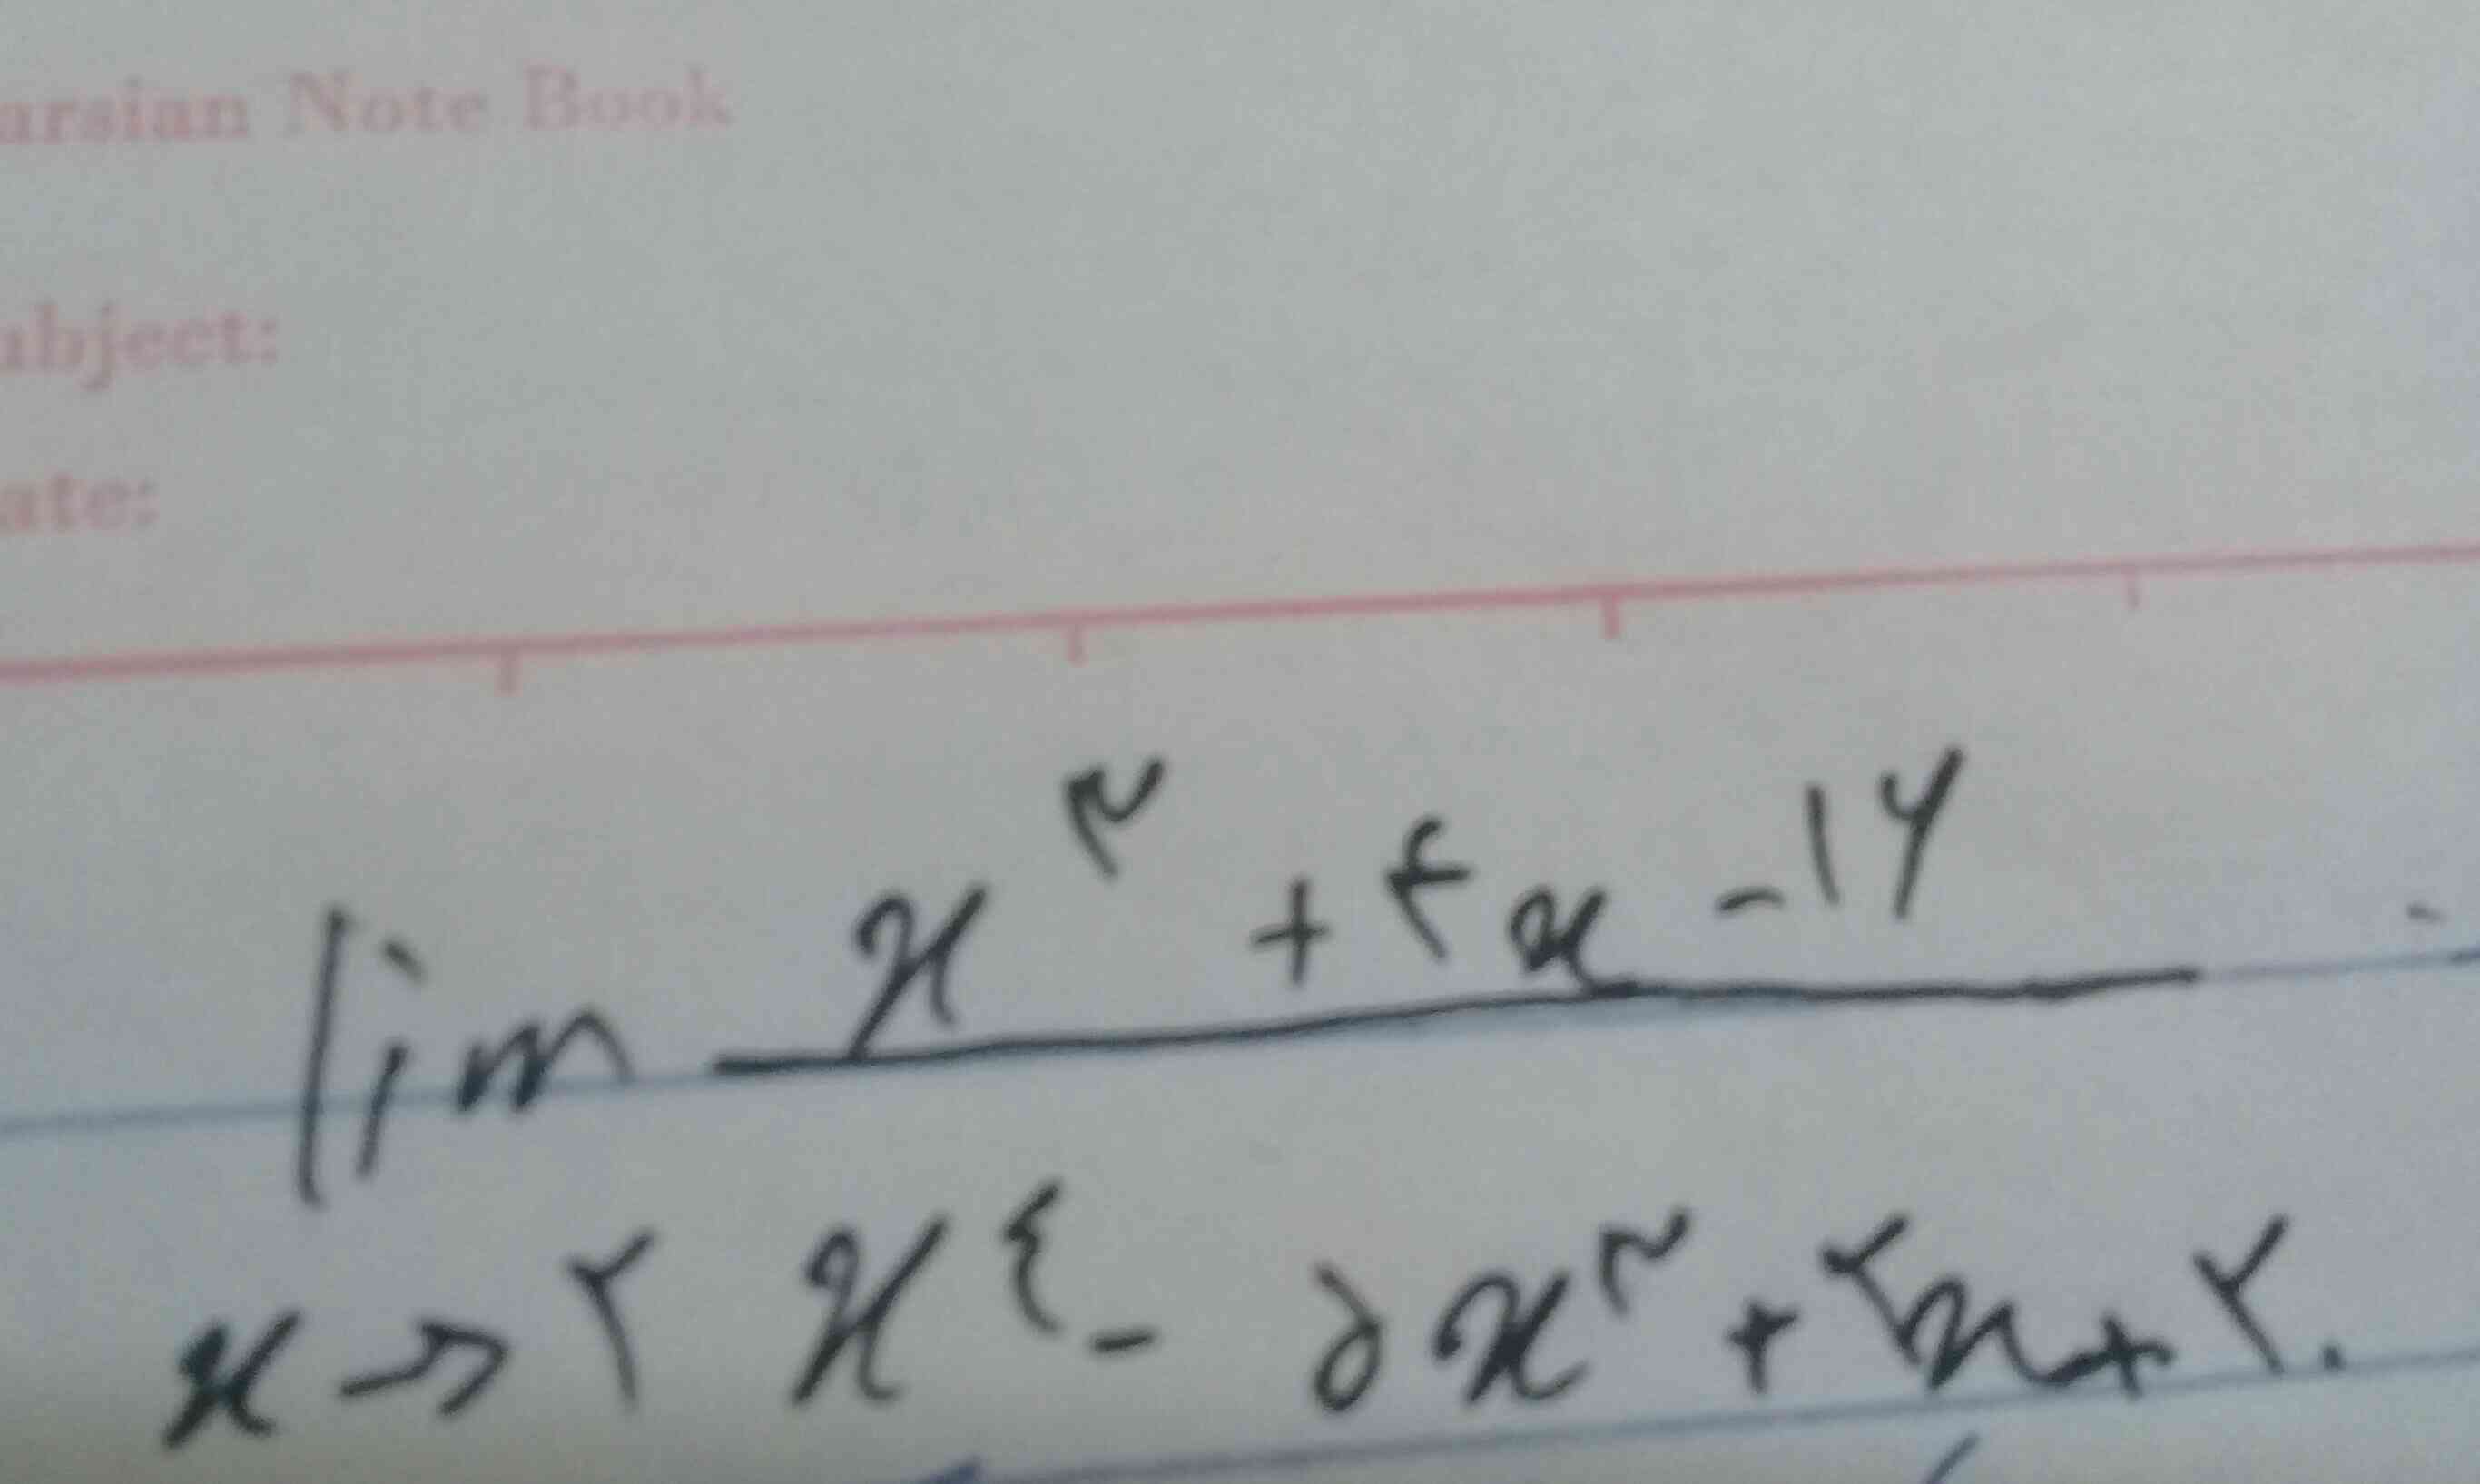 arsian Note Book
ubject:
ate:
lim x^۳ + ۴x - ۱۶
x → ۲ x^۴ - ۵x^۳ + ۲x + ۲۰